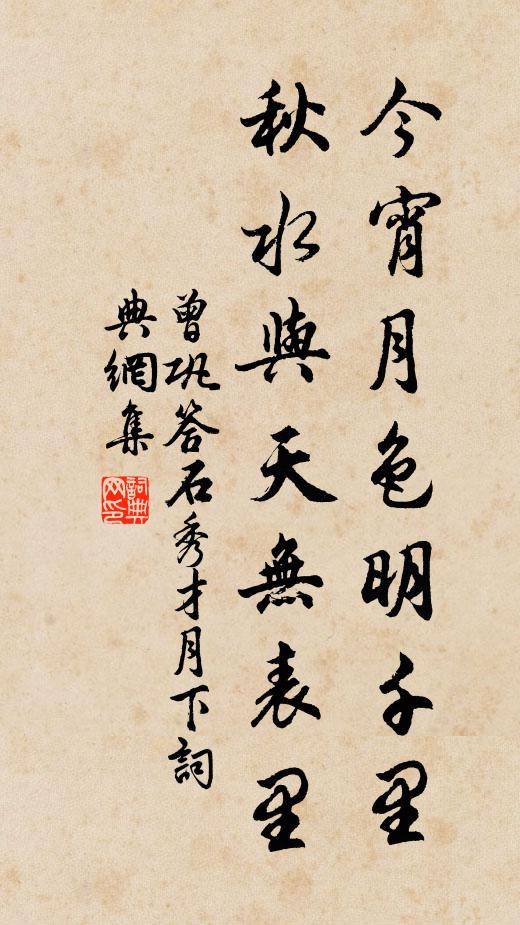 今宵月色明千里
秋水與天無表里
曾巩答石秀才月下詞
典網集
詞典
网印